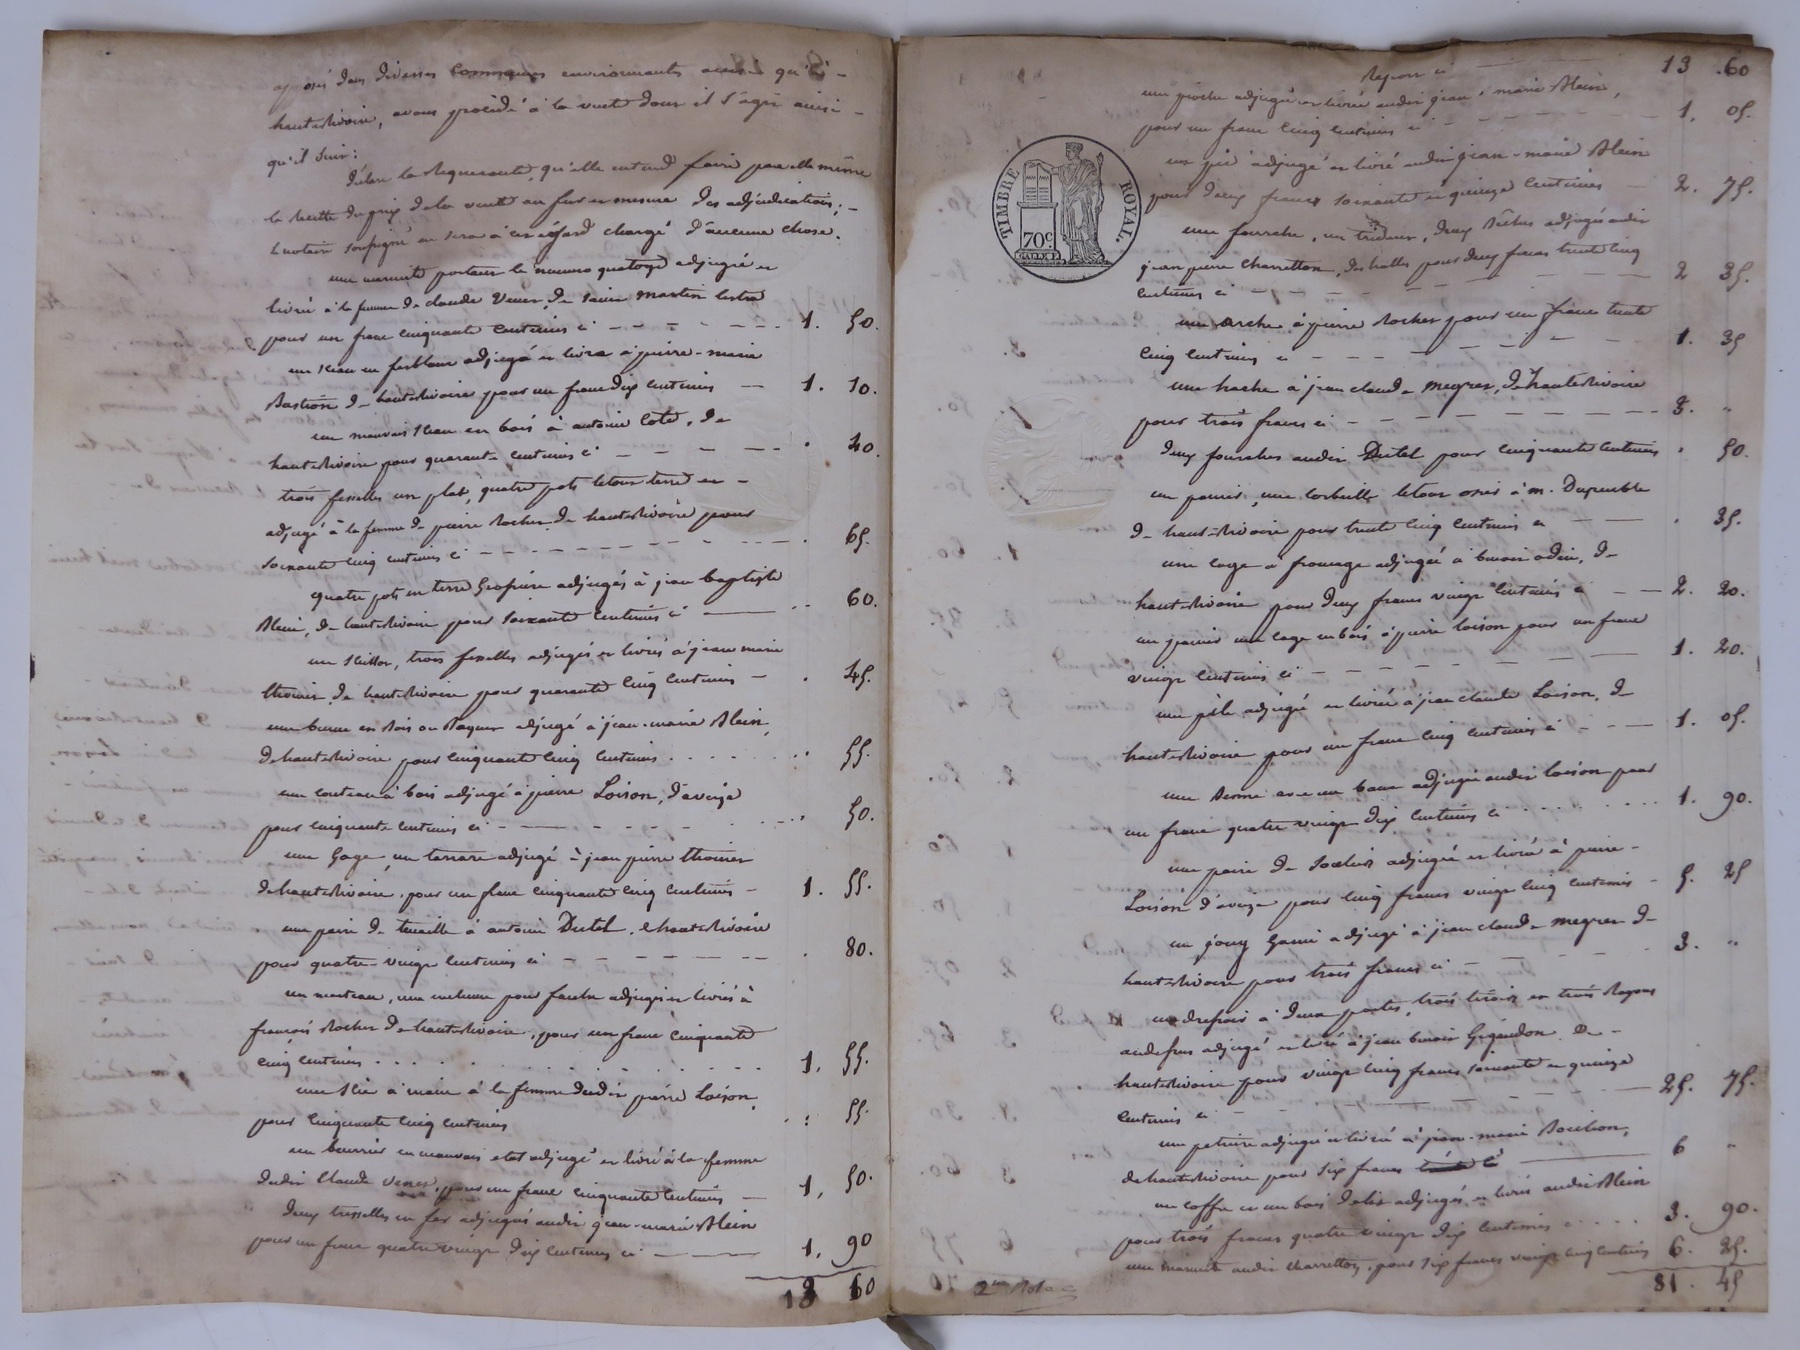 apposés dans diverses communes environnantes ainsi qu'à
hauterivoire, avons procédé à la vente dont il s'agit ainsi
qu'il suit:
la Requerante, qu'elle entend faire par elle même
la recette du prix de la vente au fur et mesure des adjudications;
le notaire soussigné ne sera à cet égard chargé d'aucune chose.
une marmite portant le numero quatorze adjugée et
livrée à la femme de claude Venet, de Saint Martin Lestra
pour un franc cinquante centimes ci 1. 50.
un seau en ferblanc adjugé et livré à pierre-marie
Bastion de hauterivoire pour un franc dix centimes 1. 10.
un mauvais seau en bois à antoine Cote, de
hauterivoire pour quarante centimes ci . 40.
trois fesselles un plat, quatre pots le tout terre et
adjugé à la femme de pierre Rocher de hauterivoire pour
soixante cinq centimes ci . 65.
quatre pots en terre adjugés à jean baptiste
Blein, de hauterivoire pour soixante centimes ci 60.
un, trois fesselles adjugés et livrés à jean marie
thoinet de hauterivoire pour quarante cinq centimes . 45.
une en bois adjugé à jean-marie Blein,
de hauterivoire pour cinquante cinq centimes 55.
un couteau à bois adjugé à pierre Loison, d'aveize
pour cinquante centimes ci 50.
une, un terrare adjugé à jean pierre thoinet
de hauterivoire, pour un franc cinquante cinq centimes 1. 55.
une paire de tenaille à antoine Dutel, hauterivoire
pour quatre vingt centimes ci . 80.
un marteau, une enclume pour faulx adjugés et livrés à
francois Rocher de hauterivoire, pour un franc cinquante
cinq centimes 1. 55.
une scie à main à la femme dudit pierre Loison,
pour cinquante cinq centimes : 55.
un beurrier en mauvais etat adjugé et livré à la femme
dudit Claude Venet, pour un franc cinquante centimes 1. 50.
deux tresselles en fer adjugés audit jean-marie Blein
pour un franc quatre vingt dix centimes ci 1. 90
13 60
Report ci 13 .60
une pioche adjugée et livrée audit jean marie Blein,
pour un franc cinq centimes ci 1. 05.
un pic adjugé et livré audit jean-marie Blein
pour deux francs soixante et quinze centimes 2. 75.
TIMBRE ROYAL.
70c
une fourche, un trident, deux bêches adjugés audit
jean pierre Charretton, des halles pour deux francs trente cinq
centimes ci 2 35.
une arche à pierre Rocher pour un franc trente
cinq centimes ci 1. 35
une hache à jean claude megret, de hauterivoire
pour trois francs ci 3. "
deux fourches audit Dutel pour cinquante centimes . 50.
un panier, une corbeille le tout osier à m. Dupeuble
de hauterivoire pour trente cinq centimes ci . 35.
une cage à fromage adjugée à benoit odin, de
hauterivoire pour deux francs vingt centimes ci 2. 20.
un panier une cage en bois à pierre Loison pour un franc
vingt centimes ci 1. 20.
une pèle adjugée et livrée à jean claude Loison, de
hauterivoire pour un franc cinq centimes ci 1. 05.
une benne avec un banc adjugée audit Loison pour
un franc quatre vingt dix centimes ci 1. 90.
une paire de adjugée et livrée à pierre
Loison d'aveize pour cinq francs vingt cinq centimes 5. 25
un joug garni adjugé à jean claude megret de
hauterivoire pour trois francs ci 3. "
un dressoir à deux portes, trois tiroirs et trois Rayons
au dessus adjugé et livré à jean benoit de
hauterivoire pour vingt cinq francs soixante et quinze
centimes ci 25. 75.
une petriere adjugée et livrée à jean-marie,
de hauterivoire pour six francs ci 6 "
un coffre et un bois de lit adjugés et livrés audit Blein
pour trois francs quatre vingt dix centimes ci 3. 90.
une marmite audit Charretton, pour six francs vingt cinq centimes 6. 25.
2me Role
81. 45